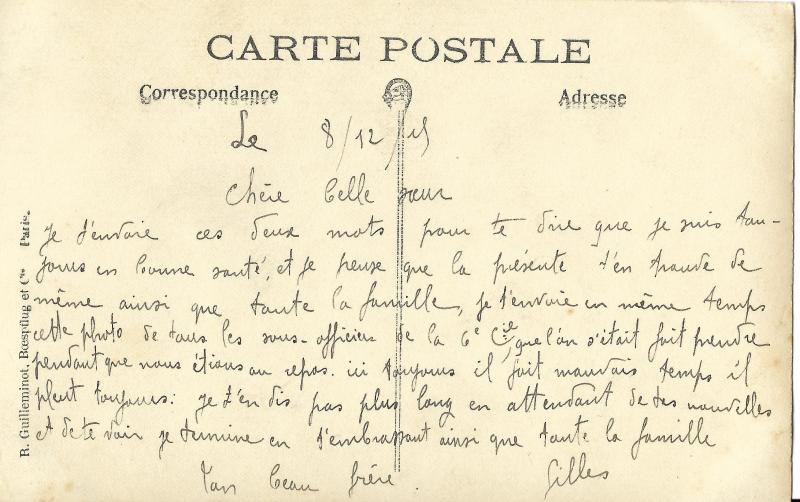 CARTE POSTALE
Correspondance
Adresse
R. Guilleminot, Bœspflug et Cie Paris.
Le 8/12/15
Chère belle sœur
Je t'envoie ces deux mots pour te dire que je suis tou-
jours en bonne santé, et je pense que la présente t'en trouve de
même ainsi que toute la famille, je t'envoie en même temps
cette photo de tous les sous-officiers de la 6e Cie, que l'on s'était fait prendre
pendant que nous étions au repos. ici toujours il fait mauvais temps il
pleut toujours: je t'en dis pas plus long en attendant de tes nouvelles
et de te voir je termine en t'embrassant ainsi que toute la famille
Ton beau frère. Gilles